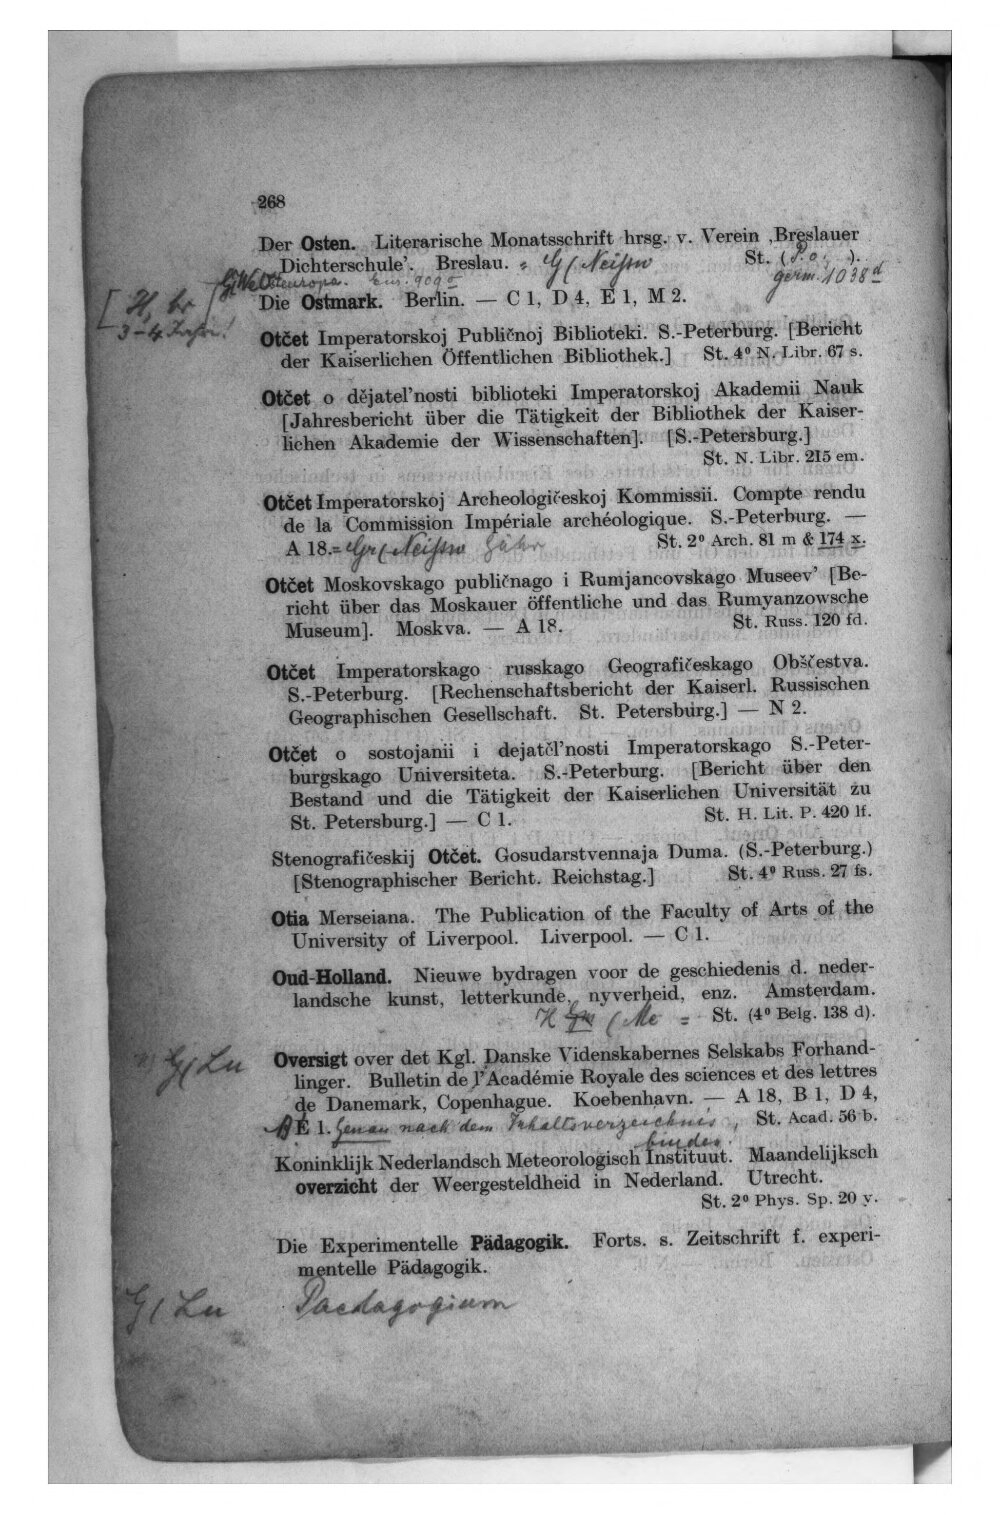 268
Der Osten. Literarische Monatsschrift hrsg. v. Verein ‚Breslauer
Dichterschule'. Breslau. = G( St. (P. o. ).
Osteuropa. Eur. 909 germ. 1038 d
Die Ostmark. Berlin. — C 1, D 4, E 1, M 2.
[H, br
3–4 Jahre!
Otčet Imperatorskoj Publičnoj Biblioteki. S.-Peterburg. [Bericht
der Kaiserlichen Öffentlichen Bibliothek.] St. 4⁰ N. Libr. 67 s.
Otčet o dějatel'nosti biblioteki Imperatorskoj Akademii Nauk
[Jahresbericht über die Tätigkeit der Bibliothek der Kaiser-
lichen Akademie der Wissenschaften]. [S.-Petersburg.]
St. N. Libr. 215 em.
Otčet Imperatorskoj Archeologičeskoj Kommissii. Compte rendu
de la Commission Impériale archéologique. S.-Peterburg. —
A 18. = St. 2⁰ Arch. 81 m & 174 x.
Otčet Moskovskago publičnago i Rumjancovskago Museev' [Be-
richt über das Moskauer öffentliche und das Rumyanzowsche
Museum]. Moskva. — A 18. St. Russ. 120 fd.
Otčet Imperatorskago russkago Geografičeskago Obščestva.
S.-Peterburg. [Rechenschaftsbericht der Kaiserl. Russischen
Geographischen Gesellschaft. St. Petersburg.] — N 2.
Otčet o sostojanii i dejatěl'nosti Imperatorskago S.-Peter-
burgskago Universiteta. S.-Peterburg. [Bericht über den
Bestand und die Tätigkeit der Kaiserlichen Universität zu
St. Petersburg.] — C 1. St. H. Lit. P. 420 lf.
Stenografičeskij Otčet. Gosudarstvennaja Duma. (S.-Peterburg.)
[Stenographischer Bericht. Reichstag.] St. 4⁰ Russ. 27 fs.
Otia Merseiana. The Publication of the Faculty of Arts of the
University of Liverpool. Liverpool. — C 1.
Oud-Holland. Nieuwe bydragen voor de geschiedenis d. neder-
landsche kunst, letterkunde, nyverheid, enz. Amsterdam.
H ( Me = St. (4⁰ Belg. 138 d).
G( Lu
Oversigt over det Kgl. Danske Videnskabernes Selskabs Forhand-
linger. Bulletin de l'Académie Royale des sciences et des lettres
de Danemark, Copenhague. Koebenhavn. — A 18, B 1, D 4,
E 1. Genau nach dem Inhaltsverzeichnis, St. Acad. 56 b.
binden.
Koninklijk Nederlandsch Meteorologisch Instituut. Maandelijksch
overzicht der Weergesteldheid in Nederland. Utrecht.
St. 2⁰ Phys. Sp. 20 y.
Die Experimentelle Pädagogik. Forts. s. Zeitschrift f. experi-
mentelle Pädagogik.
G( Lu Paedagogium